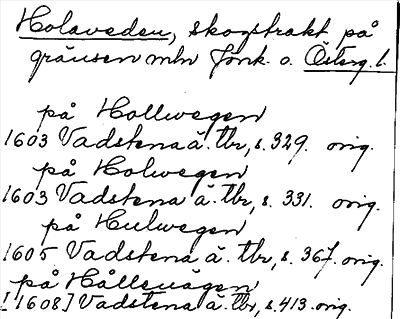 Holaveden, skogstrakt på
gränsen mln Jönk. o. Österg. l.
på Hollwegen
1603 Vadstena ä. tbr, s. 329. orig.
på Holwegen
1603 Vadstena ä. tbr, s. 331. orig.
på Hulwegen
1605 Vadstena ä. tbr, s. 367. orig.
på Hålleuägen
[1608] Vadstena ä. tbr, s. 413. orig.